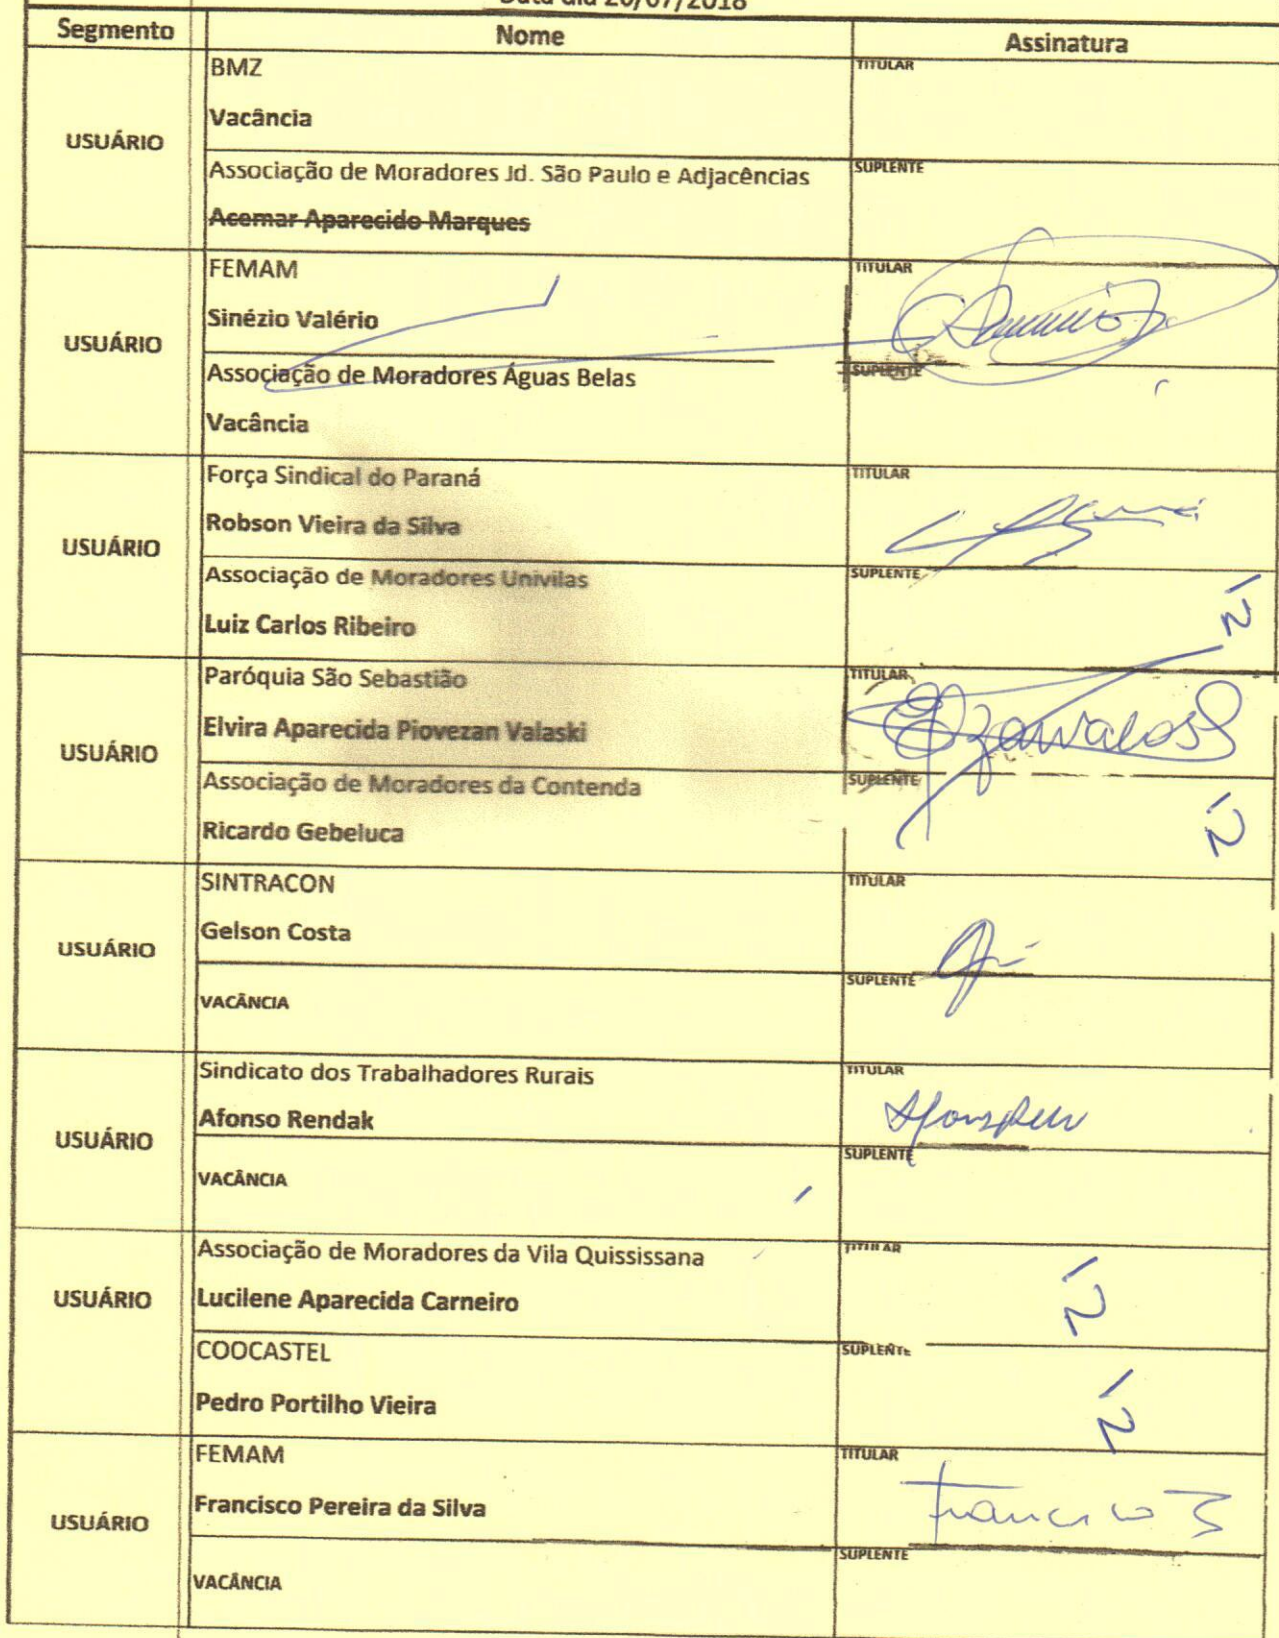 Data dia 20/07/2018
Segmento Nome Assinatura
USUÁRIO
BMZ
Vacância
TITULAR
Associação de Moradores Jd. São Paulo e Adjacências
Acemar Aparecido Marques
SUPLENTE
USUÁRIO
FEMAM
Sinézio Valério
TITULAR
Associação de Moradores Águas Belas
Vacância
SUPLENTE
USUÁRIO
Força Sindical do Paraná
Robson Vieira da Silva
TITULAR
Associação de Moradores Univilas
Luiz Carlos Ribeiro
SUPLENTE
USUÁRIO
Paróquia São Sebastião
Elvira Aparecida Piovezan Valaski
TITULAR
Associação de Moradores da Contenda
Ricardo Gebeluca
SUPLENTE
USUÁRIO
SINTRACON
Gelson Costa
TITULAR
VACÂNCIA
SUPLENTE
USUÁRIO
Sindicato dos Trabalhadores Rurais
Afonso Rendak
TITULAR
VACÂNCIA
SUPLENTE
USUÁRIO
Associação de Moradores da Vila Quississana
Lucilene Aparecida Carneiro
TITULAR
COOCASTEL
Pedro Portilho Vieira
SUPLENTE
USUÁRIO
FEMAM
Francisco Pereira da Silva
TITULAR
Francisco
VACÂNCIA
SUPLENTE